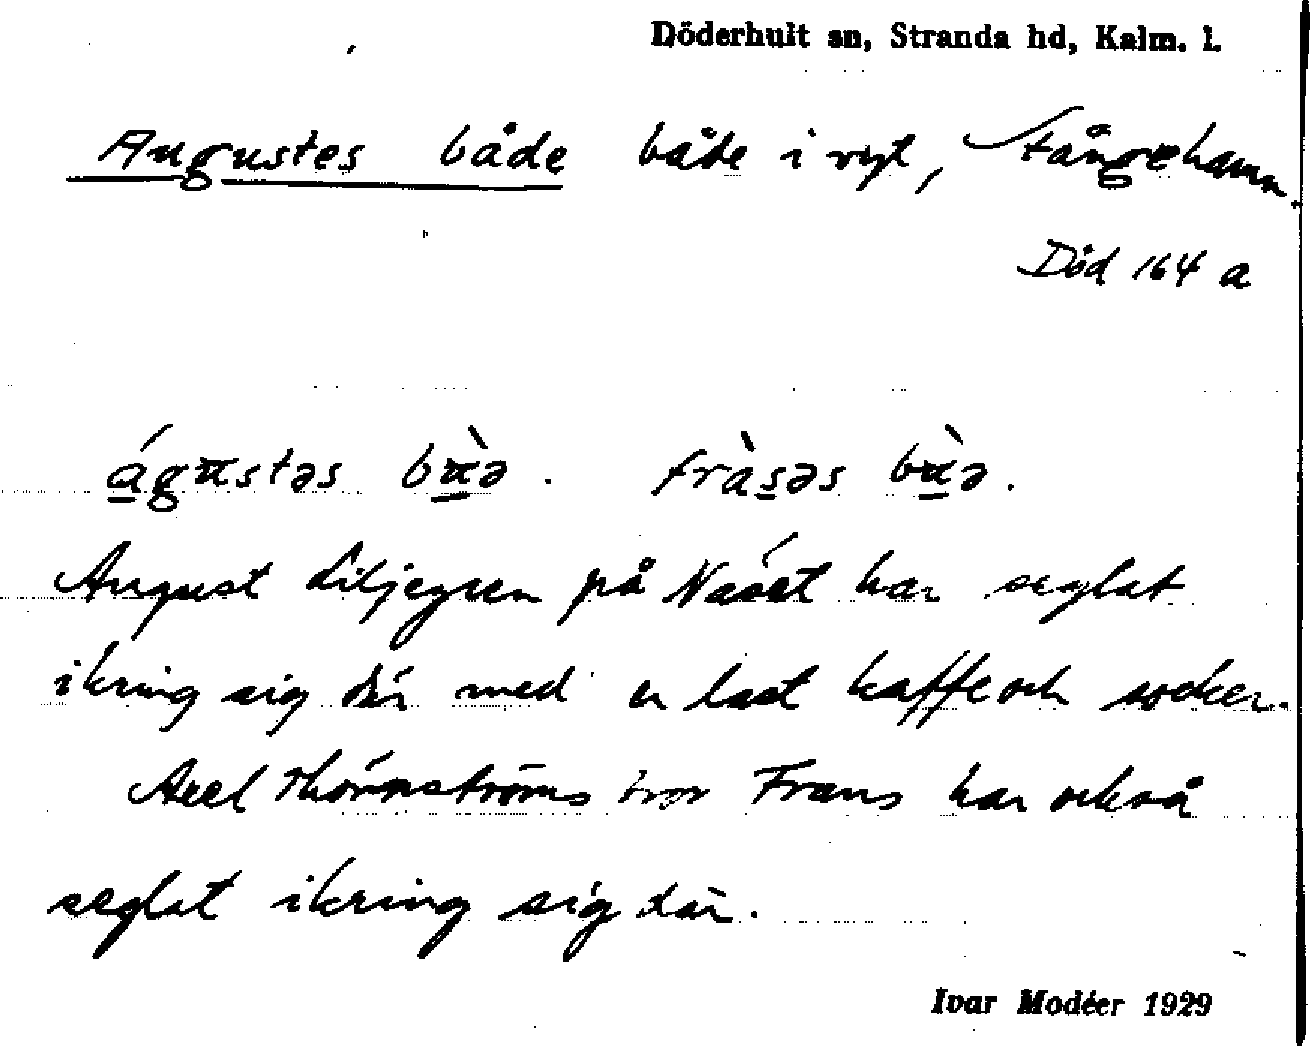 Döderhult sn, Stranda hd, Kalm. l.
Augustes både både i syd, Stångehamn.
Död 164 a
águstəs bὰə. fràsəs bὰə.
August Liljegren på Näset har seglat
ikring sig där med en last kaffe och socker.
Axel Thörnströms bror Frans har också
seglat ikring sig där.
Ivar Modéer 1929